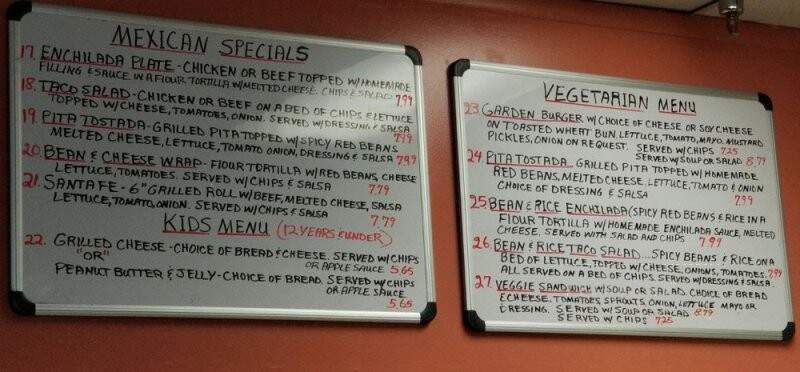 MEXICAN SPECIALS
17. ENCHILADA PLATE - CHICKEN OR BEEF TOPPED W/HOMEMADE
FILLING & SAUCE IN A FLOUR TORTILLA W/MELTED CHEESE. CHIPS & SALAD 7.99
18. TACO SALAD - CHICKEN OR BEEF ON A BED OF CHIPS & LETTUCE
TOPPED W/CHEESE, TOMATOES, ONION. SERVED W/DRESSING & SALSA
7.99
19. PITA TOSTADA - GRILLED PITA TOPPED W/SPICY RED BEANS
MELTED CHEESE, LETTUCE, TOMATO ONION, DRESSING & SALSA 7.99
20. BEAN & CHEESE WRAP - FLOUR TORTILLA W/RED BEANS, CHEESE
LETTUCE, TOMATOES. SERVED W/CHIPS & SALSA 7.79
21. SANTA FE - 6" GRILLED ROLL W/BEEF, MELTED CHEESE, SALSA
LETTUCE, TOMATO, ONION. SERVED W/CHIPS & SALSA 7.79
KIDS MENU (12 YEARS & UNDER)
22. GRILLED CHEESE - CHOICE OF BREAD & CHEESE. SERVED W/CHIPS
"OR" OR APPLE SAUCE 5.65
PEANUT BUTTER & JELLY - CHOICE OF BREAD. SERVED W/CHIPS
OR APPLE SAUCE
5.65
VEGETARIAN MENU
23 GARDEN BURGER W/ CHOICE OF CHEESE OR SOY CHEESE
ON TOASTED WHEAT BUN, LETTUCE, TOMATO, MAYO. MUSTARD
PICKLES, ONION ON REQUEST. SERVED W/CHIPS 7.25
SERVED W/SOUP OR SALAD 8.79
24. PITA TOSTADA GRILLED PITA TOPPED W/HOMEMADE
RED BEANS, MELTED CHEESE, LETTUCE, TOMATO & ONION
CHOICE OF DRESSING & SALSA 7.99
25. BEAN & RICE ENCHILADA (SPICY RED BEANS & RICE IN A
FLOUR TORTILLA W/HOMEMADE ENCHILADA SAUCE, MELTED
CHEESE. SERVED WITH SALAD AND CHIPS 7.99
26. BEAN & RICE TACO SALAD... SPICY BEANS & RICE ON A
BED OF LETTUCE, TOPPED W/ CHEESE, ONIONS, TOMATOES. 7.99
ALL SERVED ON A BED OF CHIPS. SERVED W/DRESSING & SALSA
27. VEGGIE SANDWICH W/SOUP OR SALAD. CHOICE OF BREAD
& CHEESE. TOMATOES SPROUTS, ONION, LETTUCE MAYO OR
DRESSING. SERVED W/SOUP OR SALAD 8.79
SERVED W/ CHIPS 7.25